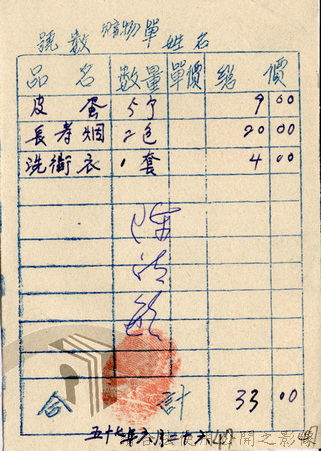 號數 購物單 姓名
品名 數量 單價 總價
皮蛋 5个 9 00
長壽烟 2包 20 00
洗衛衣 1套 4 00
陳
合計 33 00
五十七年六月二十六